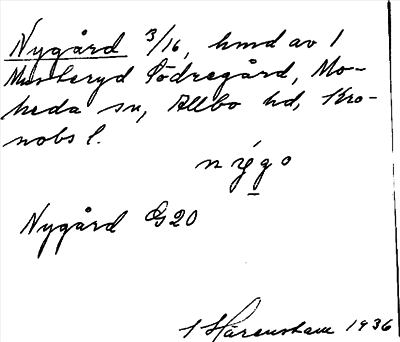 Nygård 3/16, hmd av 1
Musteryd Södregård, Mo-
heda sn, Allbo hd, Kro-
nobs l.
nýgo
Nygård G20
1936